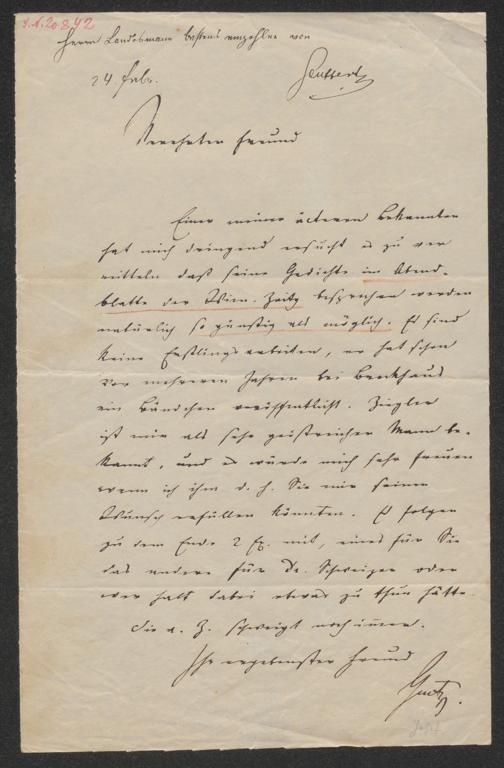 I.N. 20.842
Herrn Landesmann bestens empfohlen von
Seuffert
24 Febr.
Verehrter Freund
Einer meiner älteren Bekannten
hat mich dringend ersucht es zu ver
mitteln daß seine Gedichte im Abend-
blatte der Wien. Zeitg besprochen werden
natürlich so günstig als möglich. Es sind
keine Erstlingsarbeiten, er hat schon
vor mehreren Jahren bei Brockhaus
ein Bändchen veröffentlicht. Ziegler
ist mir als sehr geistreicher Mann be-
kannt, und es würde mich sehr freuen
wenn ich ihm d. h. Sie mir seinen
Wunsch erfüllen könnten. Es folgen
zu dem Ende 2 Ex. mit, eines für Sie
das andere für Dr. Schweizer oder
wer halt dabei etwas zu thun hätte.
Die a. Z. schweigt noch immer.
Ihr ergebenster Freund